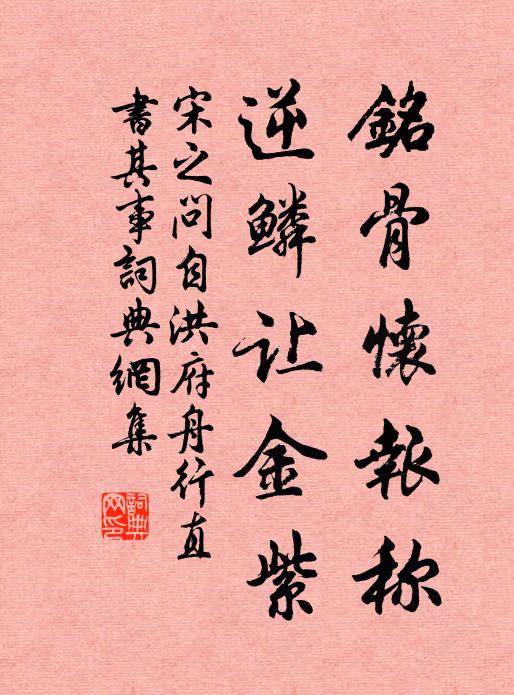 銘骨懷報称
逆鱗让金紫
宋之问自洪府舟行直
書其事詞典網集
詞典网印